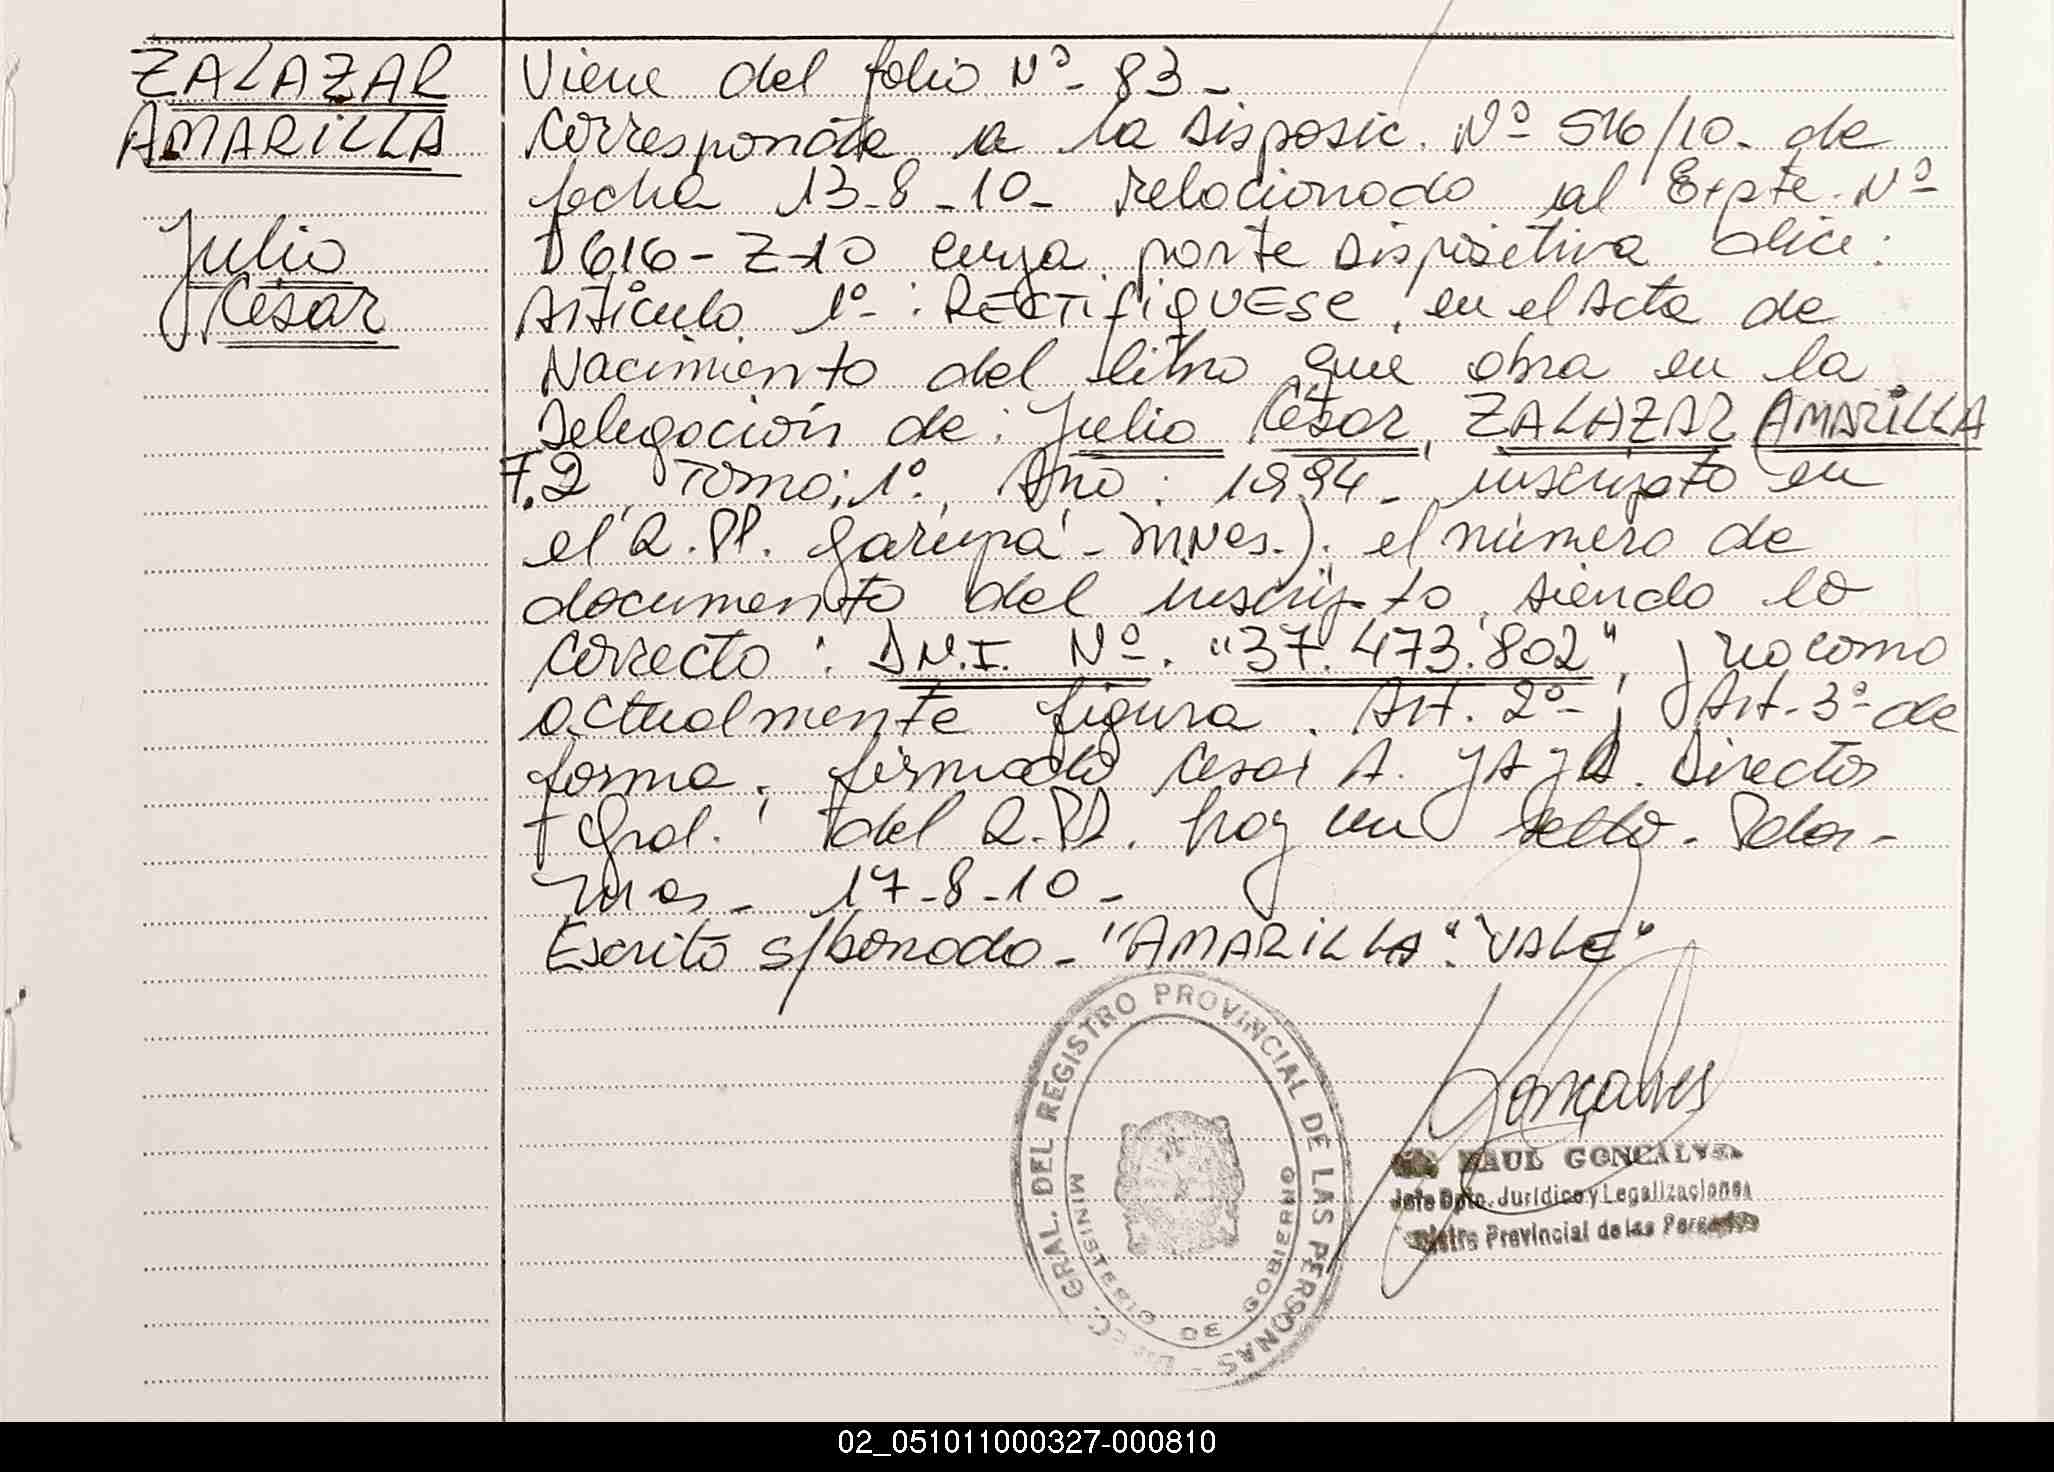 ZALAZAR
AMARILLA
Julio
César
Viene del folio Nº- 83-
Corresponde a la Disposic. Nº 516/10- de
fecha 13-8-10- relacionado al Expte. Nº
D616-Z-10 cuya parte dispositiva dice:
Artículo 1º-: RECTIFIQUESE, en el Acta de
Nacimiento del libro que obra en la
Delegación de: Julio César, ZALAZAR AMARILLA
T.2 Tomo: 1º. Año: 1994- inscripto en
el R.PP. Garupá - Mnes.). el número de
documento del inscripto, siendo lo
correcto: D.N.I. Nº. "37.473.802", y no como
actualmente figura. Art. 2º-; Art. 3º de
forma. firmado Cesar A. Director
Gral. del R.PP. hay un sello. Pdas-
Mnes- 17-8-10-
Escrito s/borrado- "AMARILLA". "VALE"
DIREC. GRAL. DEL REGISTRO PROVINCIAL DE LAS PERSONAS
MINISTERIO DE GOBIERNO
Goncalves
RAUL GONCALVES
Jefe Dpto. Jurídico y Legalizaciones
Registro Provincial de las Personas
02_051011000327-000810